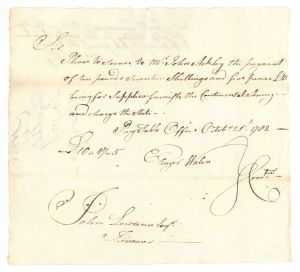 Sir
Please to secure to Mr John Ashby the payment
of ten pounds Seventeen Shillings and five pence L M
being for Supplies furnisht the Continental Army
and charge the State
Pay Table Office Octob 28th 1782
£10 " 17 " 5
Eleazer Wales
Comtee
John Lawrence Esqr
Treasurer